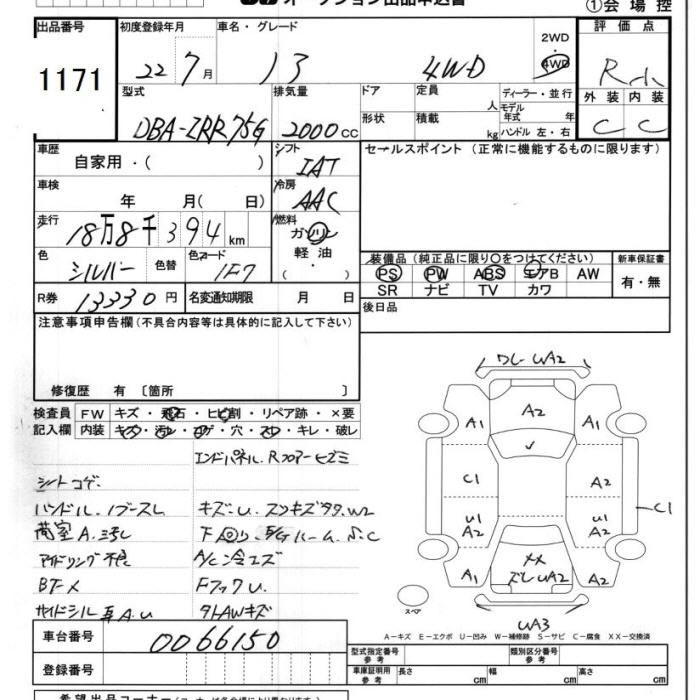 オークション出品申込書 ①会場控
出品番号 初度登録年月 車名・グレード 2WD・4WD 評価点
1171 22 7月 13 4WD R 小
外装 内装
型式 排気量 ドア 定員 人 ディーラー・並行
DBA-ZRR75G 2000cc 形状 積載 kg モデル年式 年
ハンドル 左・右 C C
車歴 自家用・( ) シフト IAT セールスポイント(正常に機能するものに限ります)
車検 年 月( 日) 冷房 AAC
走行 18万8千394km 燃料 ガソリン
軽油・( )
色 シルバー 色替 色コード 1F7
装備品(純正品に限り○をつけてください) 新車保証書
PS PW ABS エアB AW 有・無
SR ナビ TV カワ
R券 13330円 名変通知期限 月 日 後日品
注意事項申告欄(不具合内容等は具体的に記入して下さい)
修復歴 有〔箇所 〕
検査員記入欄 FW キズ・飛石・ヒビ割・リペア跡・×要
内装 キズ・汚レ・コゲ・穴・スレ・キレ・破レ
エンドパネル.Rフロアーヒズミ
シートコゲ
ハンドル.ノブースレ キズ.U.スリキズタタ.W2
荷室A.汚レ 下回り.E/Gルーム S.C
アイドリング不良 A/C冷エズ
BTメ FフックU.
サイドシル耳A.U 外AWキズ
ワレ WA2
A2
A1 A1
C1 A2
U1 A2 U1 A2
C1
A1 ××ズレUA2 A2
スペア
UA3
A−キズ E−エクボ U−凹み W−補修跡 S−サビ C−腐食 XX−交換済
車台番号 0066150
型式指定番号 参考 類別区分番号 参考
登録番号 車庫証明用 参考 長さ cm 幅 cm 高さ cm
希望出品コーナー